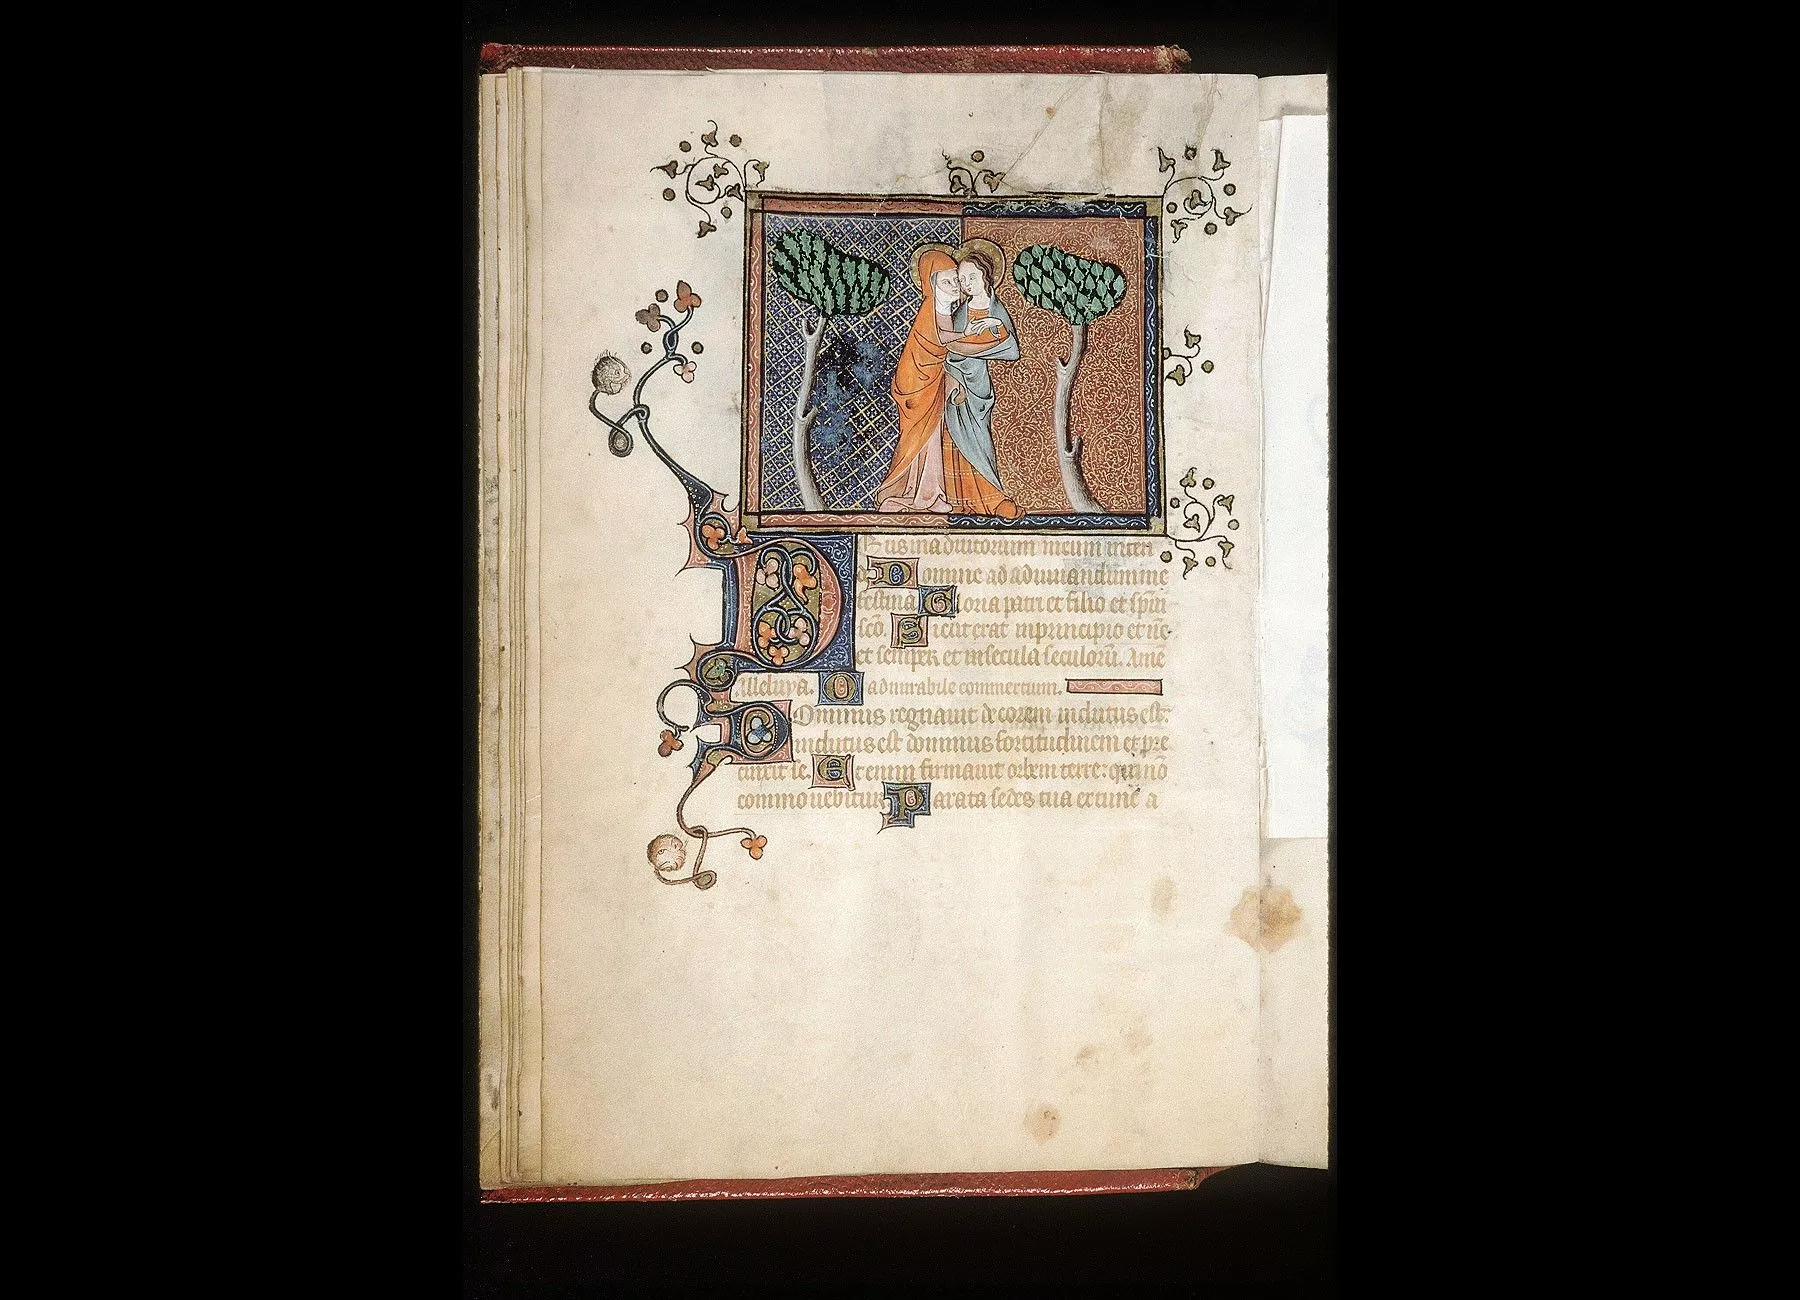 Deus in adiutorium meum inten
de Domine ad adiuuandum me
festina Gloria patri et filio et spiri
sc̄o. Sicut erat in principio et nc̄
et semper et in secula seculorū. Amē
Alleluya. O admirabile commercium.
Dominus regnauit decorem indutus est:
indutus est dominus fortitudinem et pre
cinxit se. Etenim firmauit orbem terre: qui nō
commouebitur Parata sedes tua ex tunc a